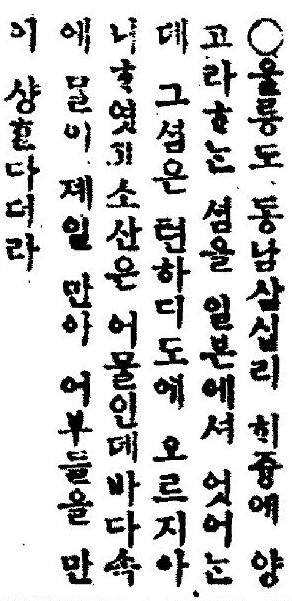 ○울릉도 동남삼십리 ᄒᆡ즁에 양
고라ᄒᆞᄂᆞᆫ 셤을 일본에셔 엇어ᄂᆞᆫ
데 그셤은 텬하디도에 오르지아
니ᄒᆞ엿고 소산은 어물인데바다속
에 물이 제일 만아 어부들을 만
이 샹ᄒᆞᆫ다더라